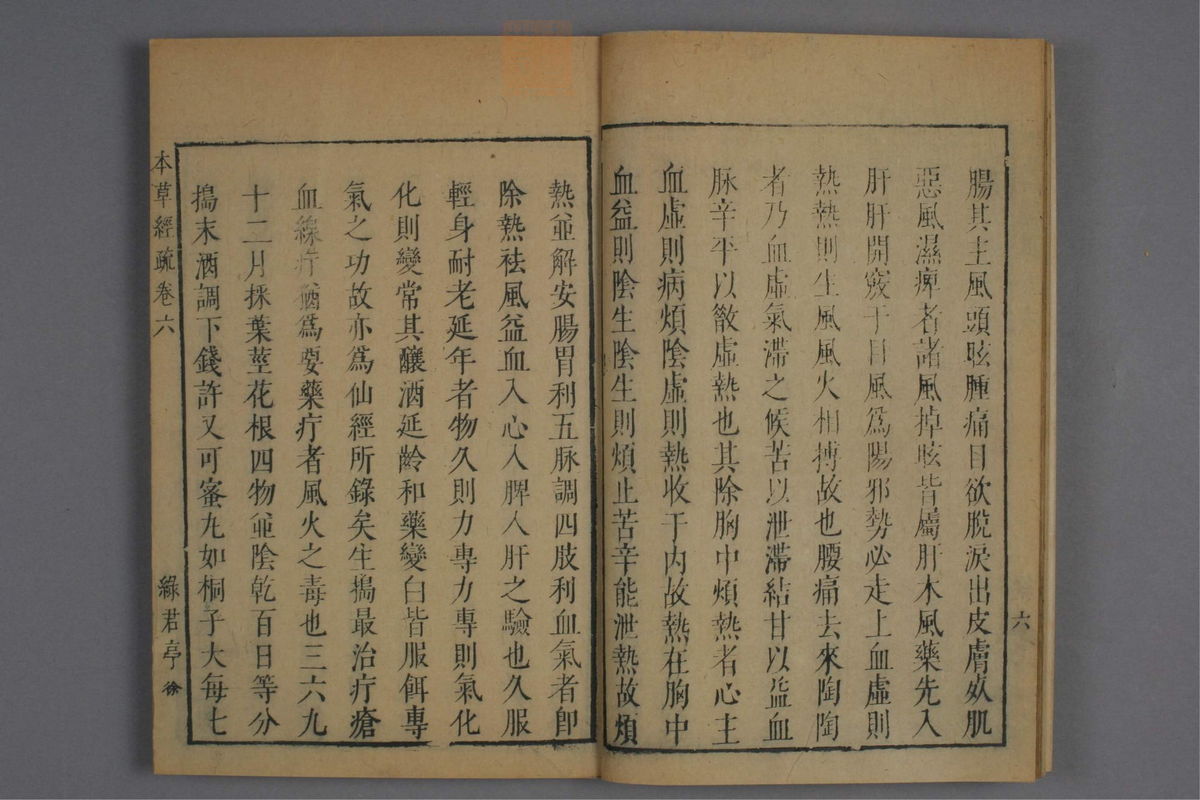 腸其主風頭眩腫痛目欲脫淚出皮膚死肌
惡風濕痺者諸風掉眩皆屬肝木風藥先入
肝肝開竅于目風爲陽邪勢必走上血虛則
熱熱則生風風火相搏故也腰痛去來陶陶
者乃血虛氣滯之候苦以泄滯結甘以益血
脉辛平以散虛熱也其除胸中煩熱者心主
血虛則病煩陰虛則熱收于内故熱在胸中
血益則陰生陰生則煩止苦辛能泄熱故煩
六
熱並解安腸胃利五脉調四肢利血氣者即
除熱祛風益血入心入脾入肝之驗也久服
輕身耐老延年者物久則力專力專則氣化
化則變常其釀酒延齡和藥變白皆服餌專
氣之功故亦爲仙經所錄矣生搗最治疔瘡
血線疔猶爲要藥疔者風火之毒也三六九
十二月採葉莖花根四物並陰乾百日等分
搗末酒調下錢許又可蜜丸如桐子大每七
本草經疏卷六
綠君亭 徐